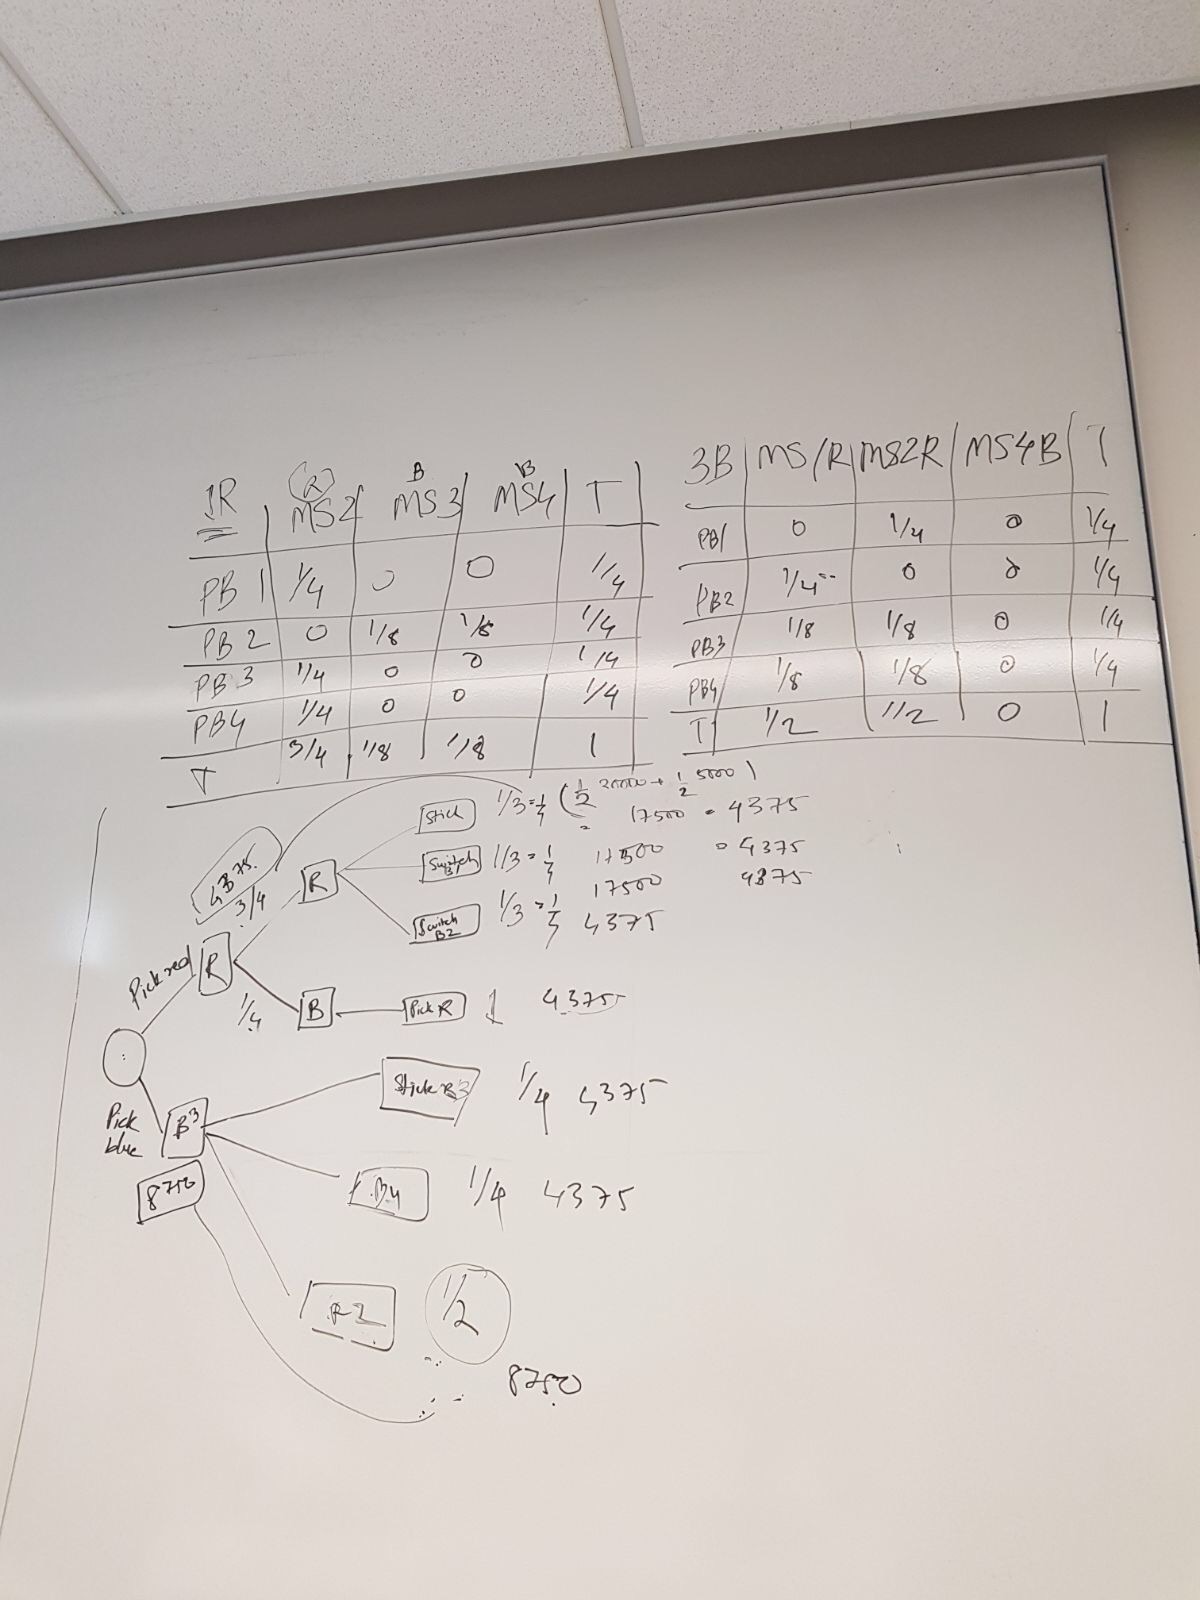 1R (R) MS2 B MS3 B MS4 T
PB 1 1/4 0 0 1/4
PB 2 0 1/8 1/8 1/4
PB 3 1/4 0 0 1/4
PB4 1/4 0 0 1/4
T 3/4 1/8 1/8 1
3B MS1R MS2R MS4B T
PB1 0 1/4 0 1/4
PB2 1/4 0 0 1/4
PB3 1/8 1/8 0 1/4
PB4 1/8 1/8 0 1/4
T 1/2 1/2 0 1
Stick 1/3 = 1/4 (1/2 30000 + 1/2 5000)
= 17500 = 4375
4375 3/4 R Switch 1/3 = 1/4 17500 = 4375
Switch B2 1/3 = 1/4 17500 4375
4375
Pick red R
1/4 B Pick R 1 4375
Pick blue B3
8750
Stick B3 1/4 4375
B4 1/4 4375
R2 1/2
8750